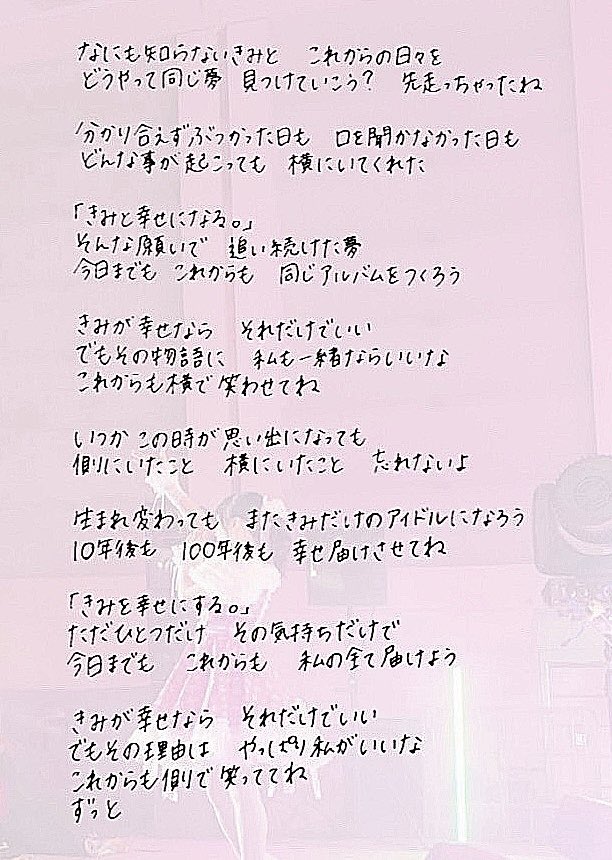 なにも知らないきみと　これからの日々を
どうやって同じ夢　見つけていこう？　先走っちゃったね
分かり合えずぶつかった日も　口を聞かなかった日も
どんな事が起こっても　横にいてくれた
「きみと幸せになる。」
そんな願いで　追い続けた夢
今日までも　これからも　同じアルバムをつくろう
きみが幸せなら　それだけでいい
でもその物語に　私も一緒ならいいな
これからも横で笑わせてね
いつか この時が思い出になっても
側にいたこと　横にいたこと　忘れないよ
生まれ変わっても　またきみだけのアイドルになろう
10年後も　100年後も　幸せ届けさせてね
「きみを幸せにする。」
ただひとつだけ　その気持ちだけで
今日までも　これからも　私の全て届けよう
きみが幸せなら　それだけでいい
でもその理由は　やっぱり私がいいな
これからも側で笑っててね
ずっと